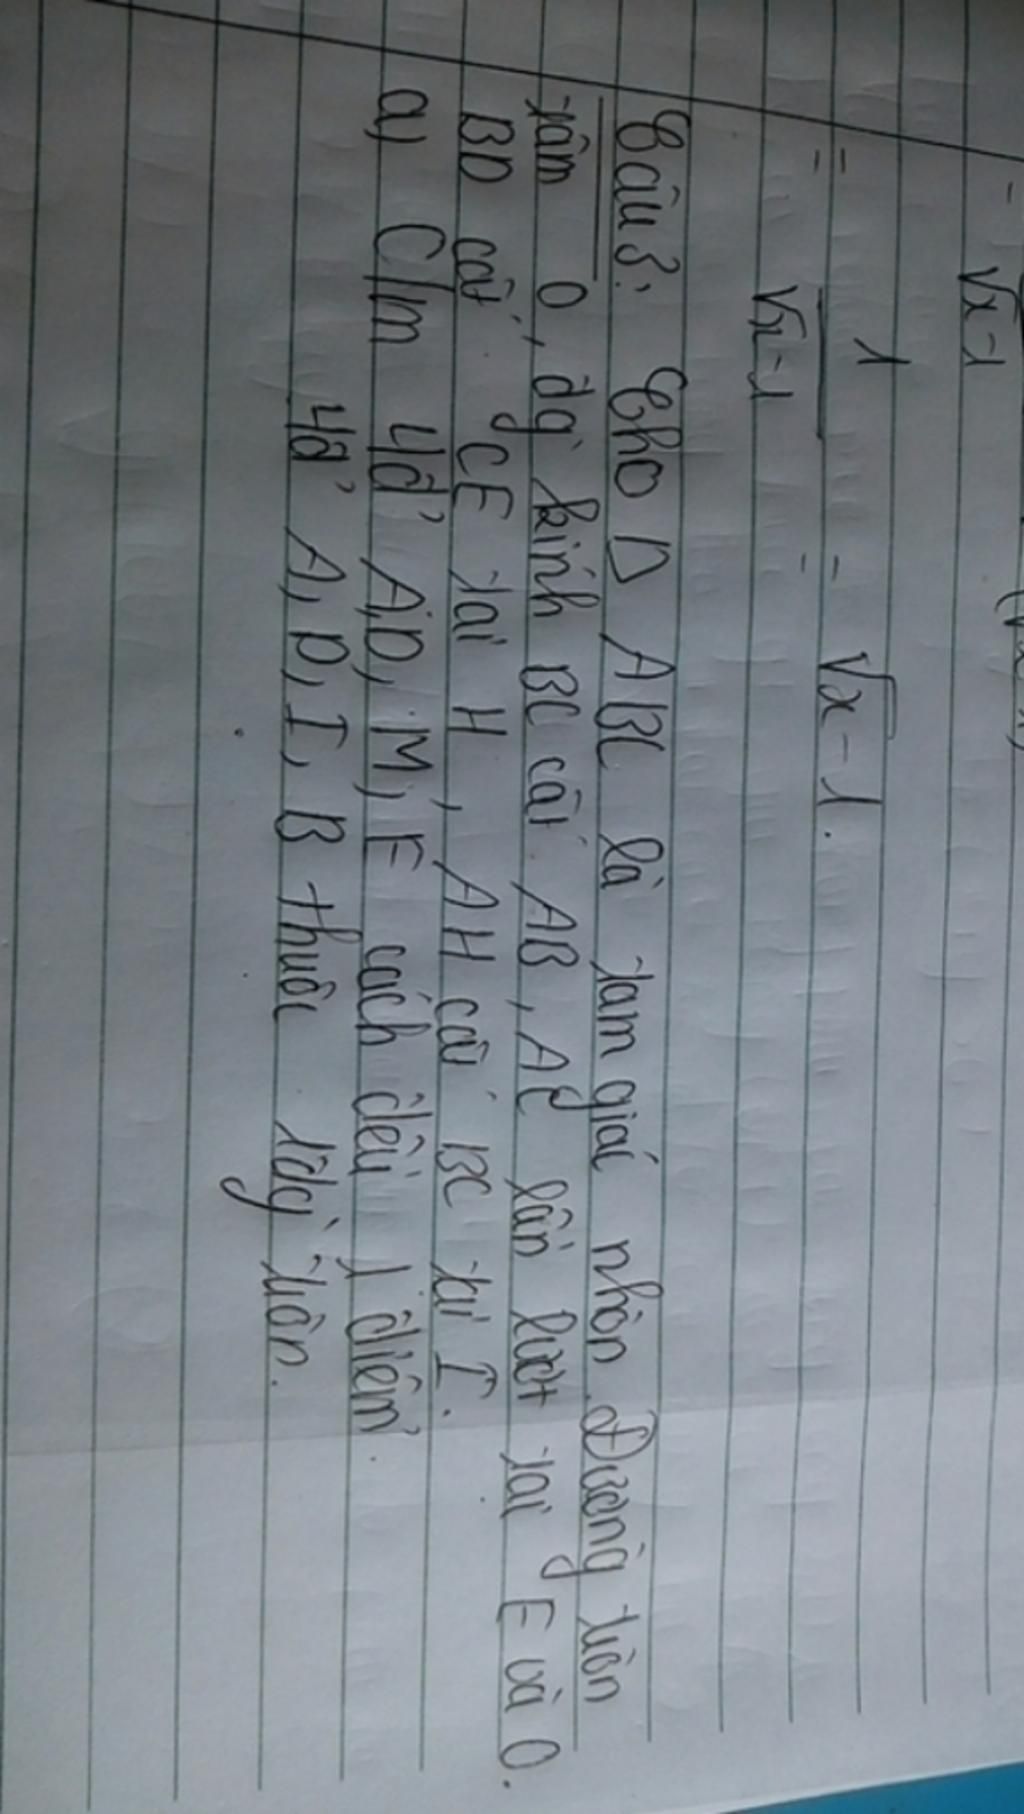 √x-1
= 1/√x-1 = √x-1.
Câu 3: Cho Δ ABC là tam giác nhọn. Đường tròn
tâm O, đg kính BC cắt AB, AC lần lượt tại E và O.
BD cắt CE tại H, AH cắt BC tại I.
a, C/m 4đ' A,D, M, E cách đều 1 điểm.
4đ' A, D, I, B thuộc 1đg tròn.